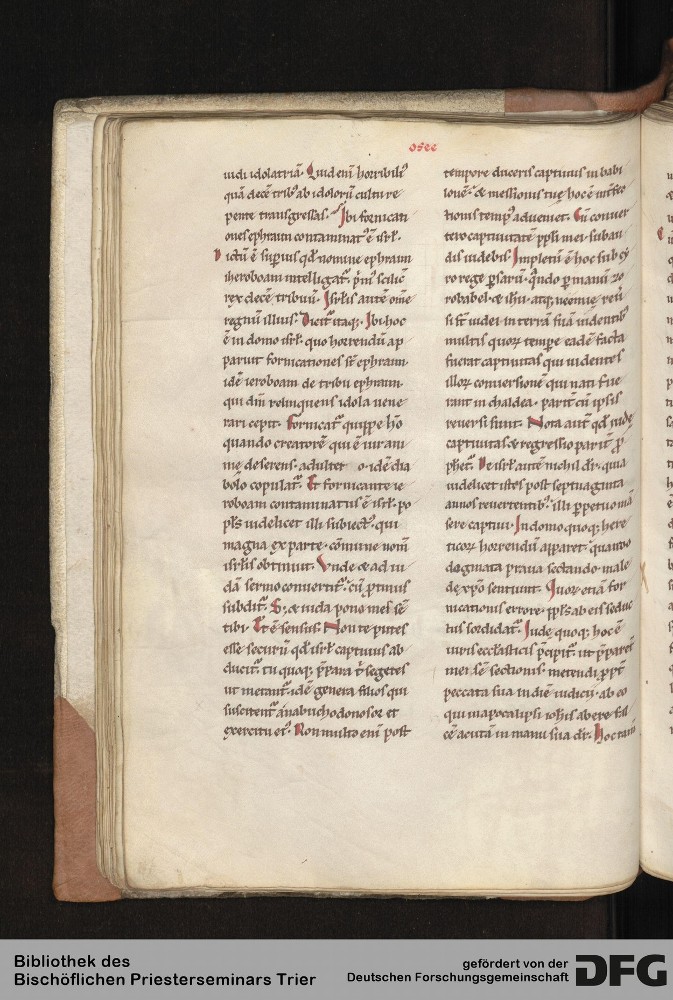 osee
uidi idolatriā. Quid eni᷎ horribili᷒
quā decē trib᷒ ab idolorū culturę re
pente transgressas. Ibi fornicati
ones ephraim contaminat᷒ ē isrl̄.
Dictū ē sup̄ius qd̄ nomine ephraim
iheroboam intelligat᷑. p̄m᷒ scilic̄
rex decē tribuū. Isrl̄is autē om̄e
regnū illius. Dicit᷑ itaq;. Ibi hoc
ē in domo isrl̄. quo horrendū ap
paruit fornicationes st̄ ephraim.
idē ieroboam de tribu ephraim.
qui dm̄ relinquens idola uene
rari cepit. Fornicat᷑ quippe hō
quando creatorē qui ē uir ani
mę deserens. adulter o. idē dia
bolo copulat᷑. Et fornicante ie
roboam contaminatus ē isrl̄. po
pl̄s uidelicet illi subiect᷒. qui
magna ex parte. cōmune nom̄
isrl̄is obtinuit. Vnde & ad iu
dā sermo conuertit᷑. cū p̄tinus
subdit᷑. S; & iuda pone mes sē
tibi. Et ē sensus. Non te putes
esse securū qd̄ isrl̄ captiuus ab
ducit᷑. tu quoq; p̄para t̄ segetes
ut metant᷑. idē genera filios qui
suscitent᷑ a nabuchodonosor et
exercitu ei᷒. Non multo eni᷎ post
tempore duceris captiuus in babi
lonē. & messionis tuę hoc ē int̄fec
tionis temp᷒ adueniet. Cū conuer
tero captiuitatē ppl̄i mei. subau
dis uidebis. Impletū ē hoc sub cy
ro rege p̄sarū. quando p̄ manū zo
robabel. & ihū. atq; neemię reu̅
si st̄ iudei in terrā suā. uidentib᷒
multis quor᷑ tempore eadē facta
fuerat captiuitas qui uidentes
illor᷑ conuersionē qui nati fue
rant in chaldea. parit̄ cū ipsis
reuersi sunt. Nota aut̄ qd̄ iudę
captiuitas & regressio parit̄ p̄
ph&᷑. De isrl̄ autē nichil dr̄. quia
uidelicet istis post septuaginta
annos reuertentib᷒. illi perpetuo mā
sere captiui. In domo quoq; here
ticor᷑ horrendū apparet. quando
dogmata praua sectando. male
de xp̄o sentiunt. Quor᷑ etiā for
nicationis errore. ppl̄s ab eis seduc
tus sordidat᷑. Iudę quoq; hoc ē
uiris eccl̄asticis p̄cipit᷑. ut p̄paret
mei sē sectionis. metendi p̄pt̄
peccata sua in die iudicii. ab eo
qui in apocalipsi ioh̄is abere fal
cē acutā in manu sua dr̄. Hoc tam̄
Bibliothek des
Bischöflichen Priesterseminars Trier
gefördert von der
Deutschen Forschungsgemeinschaft
DFG